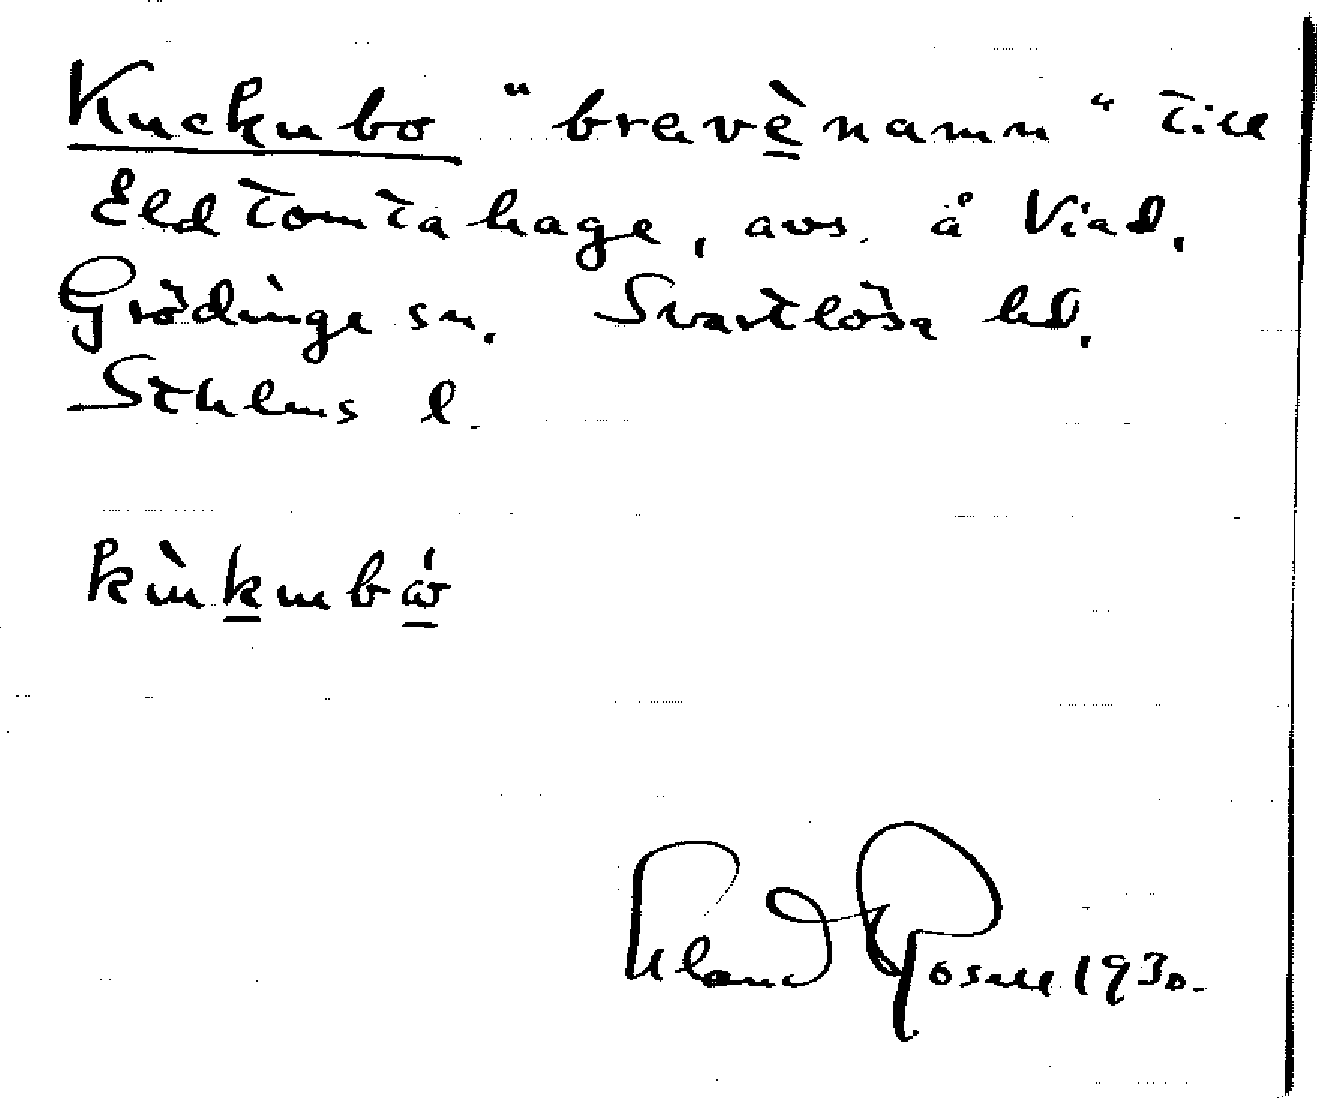 Kuckubo "bravènamn" till
Eldtomtahage, avs. å Viad.
Grödinge sn. Svartlösa hd.
Sthlms l.
kùkubó
Rosell 1930.